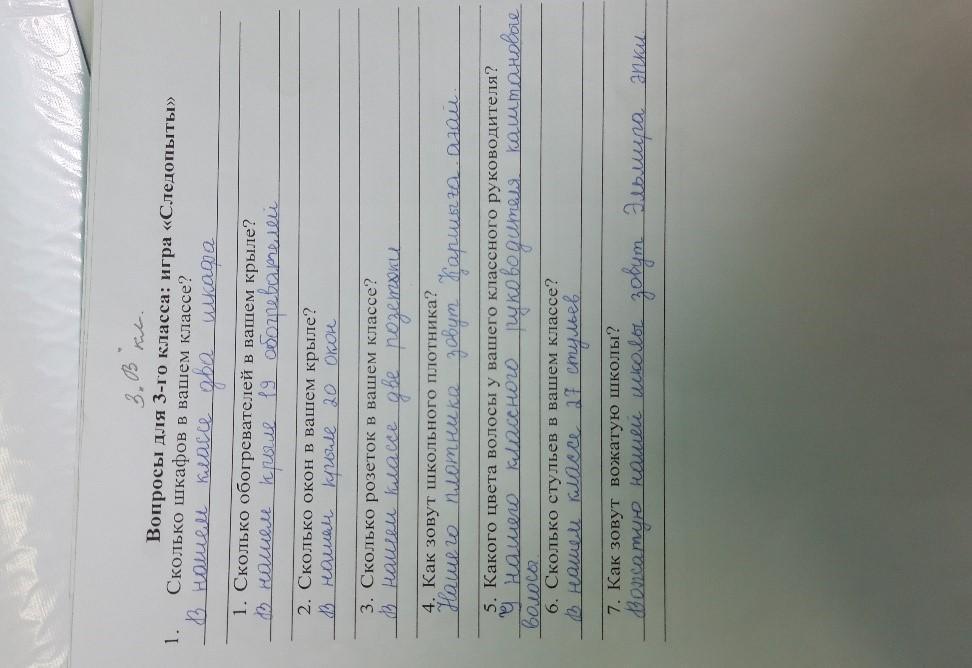 3 "В" кл.
Вопросы для 3-го класса: игра «Следопыты»
1. Сколько шкафов в вашем классе?
В нашем классе два шкафа
1. Сколько обогревателей в вашем крыле?
В нашем крыле 19 обогревателей
2. Сколько окон в вашем крыле?
В нашем крыле 20 окон
3. Сколько розеток в вашем классе?
В нашем классе две розетки
4. Как зовут школьного плотника?
Нашего плотника зовут Каршыга агай.
5. Какого цвета волосы у вашего классного руководителя?
У нашего классного руководителя каштановые
волосы.
6. Сколько стульев в вашем классе?
В нашем классе 27 стульев
7. Как зовут вожатую школы?
Вожатую нашей школы зовут Эльмира эпки